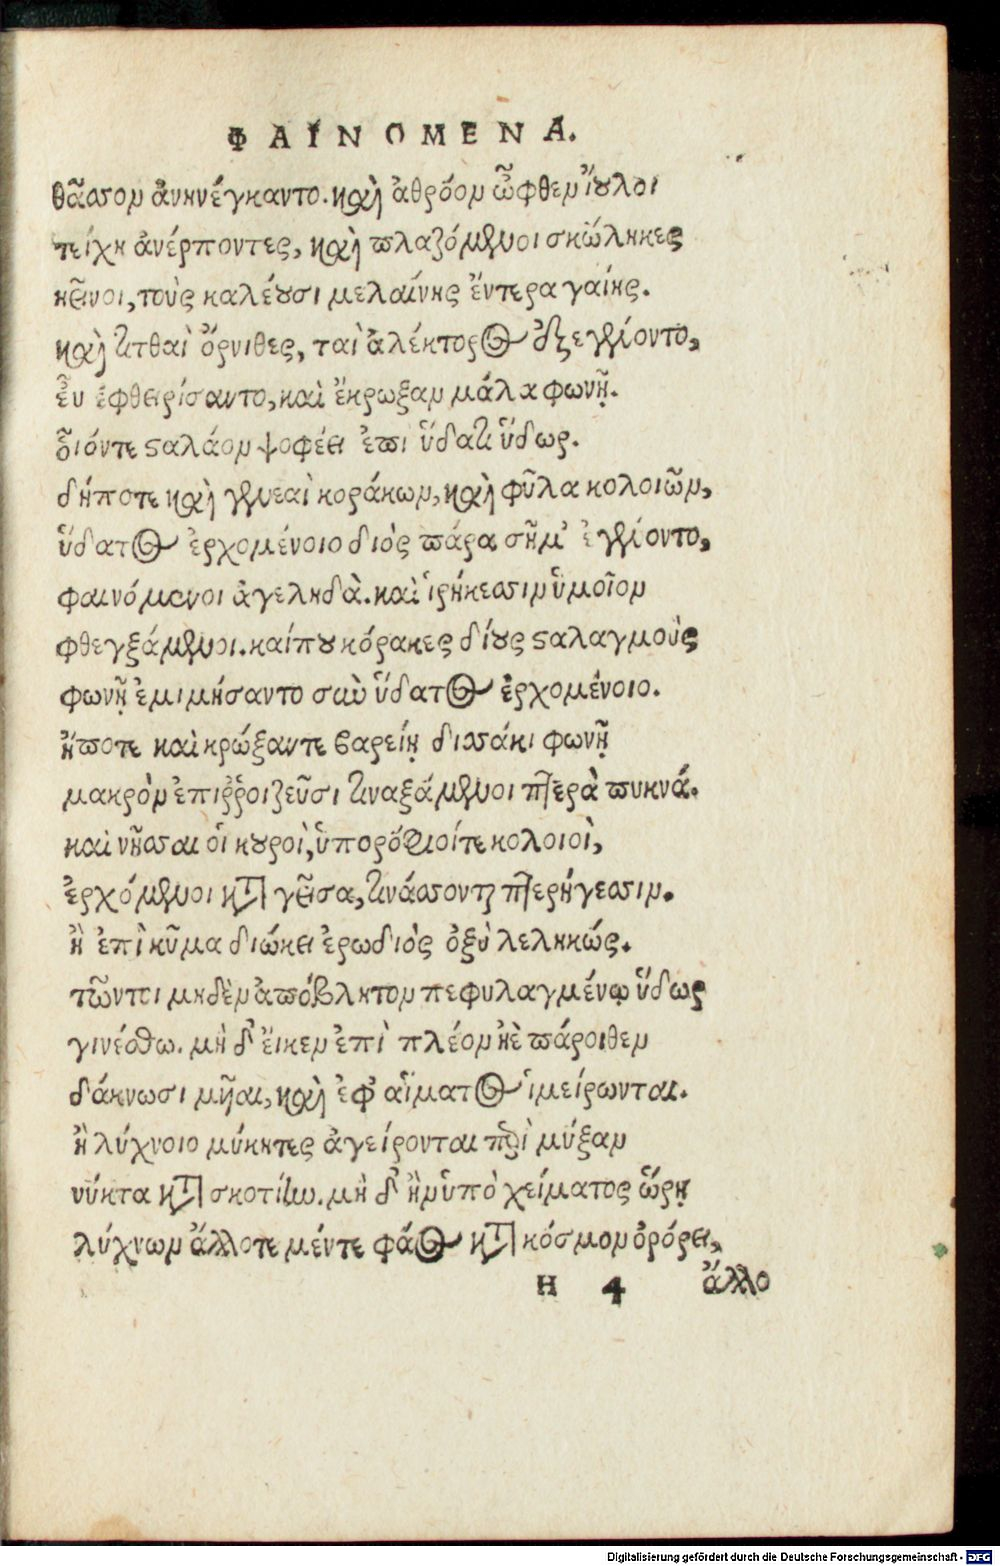 ΦΑΙΝΟΜΕΝΑ.
θᾶσσον ἀνηνέγκαντο. καὶ ἀθρόον ὦφθεν ἴουλοι
τείχη ἀνέρποντες, καὶ πλαζόμενοι σκώληκες
κεῖνοι, τοὺς καλέουσι μελαίνης ἔντερα γαίης.
καὶ τιθαὶ ὄρνιθες, ταὶ ἀλέκτορος ἐξεγένοντο,
εὖ ἐφθειρίσαντο, καὶ ἔκρωξαν μάλα φωνῇ.
οἷόντε σαλάον ψοφέει ἐπι ὕδατι ὕδωρ.
δήποτε καὶ γενεαὶ κοράκων, καὶ φῦλα κολοιῶν,
ὕδατος ἐρχομένοιο διὸς πάρα σῆμ' ἐγένοντο,
φαινόμενοι ἀγεληδὰ. καὶ ἱρήκεσσιν ὑμοῖον
φθεγξάμενοι. καίπου κόρακες δίους σαλαγμοὺς
φωνῇ ἐμιμήσαντο σὺν ὕδατος ἐρχομένοιο.
ἤποτε καὶ κρώξαντε βαρείῃ δισσάκι φωνῇ
μακρὸν ἐπιῤῥοιζεῦσι τιναξάμενοι πτερὰ πυκνά.
καὶ νῆσσαι οἰκουροὶ, ὑπορόφιοίτε κολοιοὶ,
ἐρχόμενοι κατὰ γεῖσα, τινάσσονται πτερύγεσσιν.
ἢ ἐπὶ κῦμα διώκει ἐρωδιὸς ὀξὺ λεληκώς.
τῶντοι μηδὲν ἀπόβλητον πεφυλαγμένῳ ὕδωρ
γινέσθω. μὴ δ' εἴκεν ἐπὶ πλέον ἠὲ πάροιθεν
δάκνωσι μυῖαι, καὶ ἐφ' αἵματος ἱμείρωνται.
ἢ λύχνοιο μύκητες ἀγείρονται περὶ μύξαν
νύκτα κατὰ σκοτίην. μὴ δ' ἢν ὑπὸ χείματος ὥρῃ
λύχνων ἄλλοτε μέντε φάος κατὰ κόσμον ὀρόρει,
H 4 ἄλλο
Digitalisierung gefördert durch die Deutsche Forschungsgemeinschaft - DFG